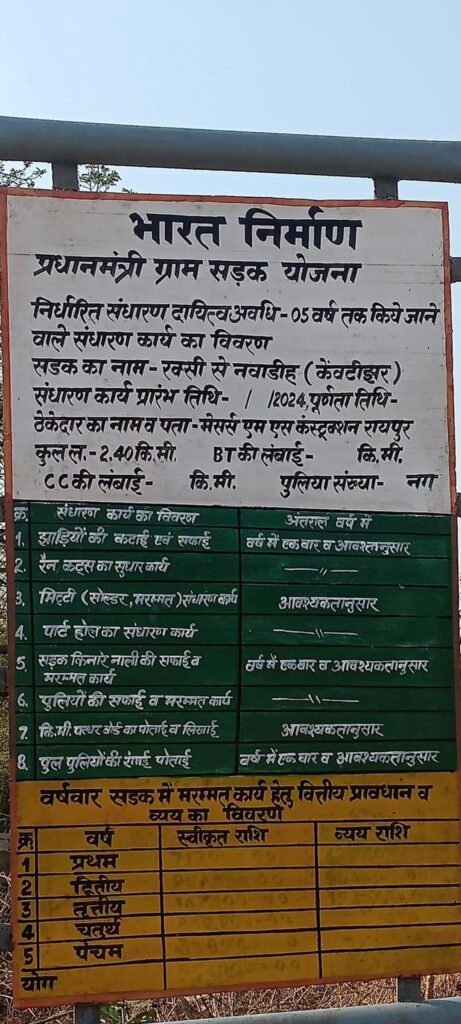 भारत निर्माण
प्रधानमंत्री ग्राम सड़क योजना
निर्धारित संधारण दायित्व अवधि - 05 वर्ष तक किये जाने
वाले संधारण कार्य का विवरण
सड़क का नाम - रक्सी से नवाडीह ( केंवटीझर )
संधारण कार्य प्रारंभ तिथि - / /2024, पूर्णता तिथि -
ठेकेदार का नाम व पता - मेसर्स एम एस कंस्ट्रक्शन रायपुर
कुल ल. - 2.40 कि.मी. BT की लंबाई - कि.मी.
CC की लंबाई - कि.मी. पुलिया संख्या - नग
क्र. संधारण कार्य का विवरण अंतराल वर्ष में
1. झाड़ियों की कटाई एवं सफाई वर्ष में एक बार व आवश्तानुसार
2. रैन कट्स का सुधार कार्य —〃—
3. मिट्टी (सोल्डर, मरम्मत) संधारण कार्य आवश्यकतानुसार
4. पार्ट होल का संधारण कार्य —〃—
5. सड़क किनारे नाली की सफाई व वर्ष में एक बार व आवश्यकतानुसार
मरम्मत कार्य
6. पुलियों की सफाई व मरम्मत कार्य —〃—
7. कि.मी. पत्थर बोर्ड का पोताई व लिखाई आवश्यकतानुसार
8. पुल पुलियों की रंगाई पोताई वर्ष में एक बार व आवश्यकतानुसार
वर्षवार सड़क में मरम्मत कार्य हेतु वित्तीय प्रावधान व
व्यय का विवरण
क्र वर्ष स्वीकृत राशि व्यय राशि
1 प्रथम
2 द्वितीय
3 तृत्तीय
4 चतुर्थ
5 पंचम
योग